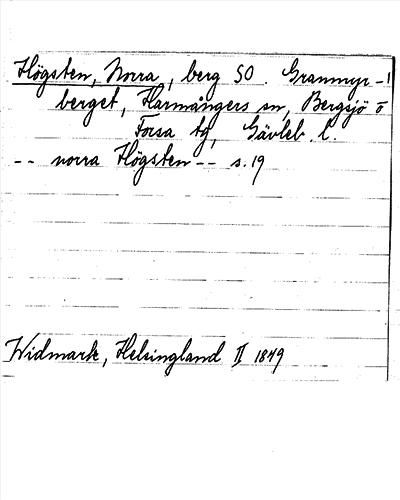 Högsten, Norra, berg SO. Granmyr-
berget, Harmångers sn, Bergsjö o
Forsa tg, Gävleb. l.
-- norra Högsten -- s. 19
Widmark, Helsingland II 1849